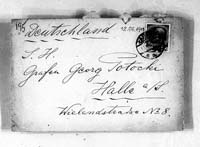 195
Deutschland
S. H.
Grafen Georg Potocki
Halle a/S.
Wielandstrasse No 8.